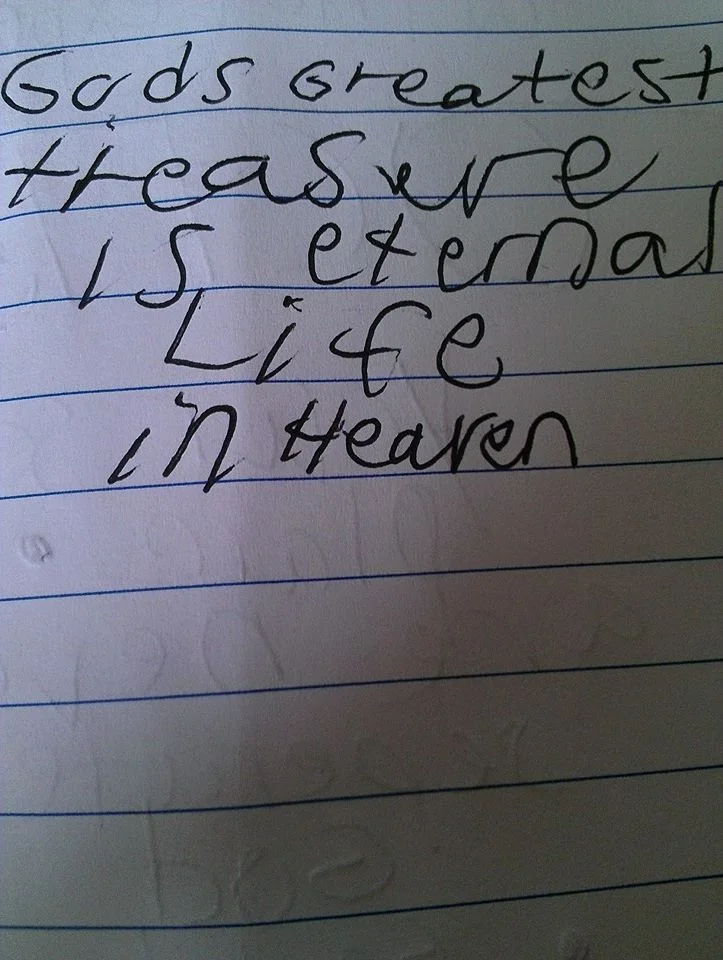 Gods Greatest
treasure
is eternal
Life
in Heaven